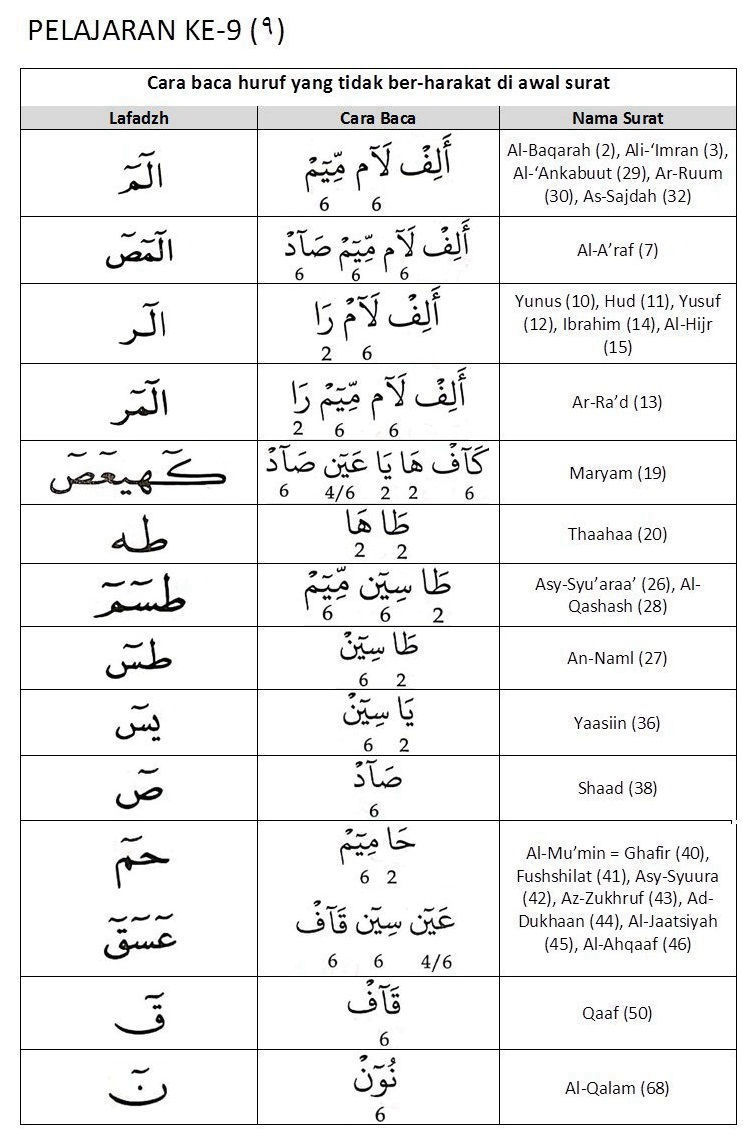 PELAJARAN KE-9 (٩)
Cara baca huruf yang tidak ber-harakat di awal surat
Lafadzh Cara Baca Nama Surat
الٓمٓ أَلِفْ لَآم مِّيٓمْ Al-Baqarah (2), Ali-‘Imran (3),
6 6 Al-‘Ankabuut (29), Ar-Ruum
(30), As-Sajdah (32)
الٓمٓصٓ أَلِفْ لَآم مِّيٓمْ صَآدْ Al-A’raf (7)
6 6 6
الٓر أَلِفْ لَآمْ رَا Yunus (10), Hud (11), Yusuf
2 6 (12), Ibrahim (14), Al-Hijr
(15)
الٓمٓر أَلِفْ لَآم مِّيٓمْ رَا Ar-Ra’d (13)
2 6 6
كٓهيعٓصٓ كَآفْ هَا يَا عَيٓن صَآدْ Maryam (19)
6 4/6 2 2 6
طه طَا هَا Thaahaa (20)
2 2
طسٓمٓ طَا سِيٓن مِّيٓمْ Asy-Syu’araa’ (26), Al-
6 6 2 Qashash (28)
طسٓ طَا سِيٓنْ An-Naml (27)
6 2
يسٓ يَا سِيٓنْ Yaasiin (36)
6 2
صٓ صَآدْ Shaad (38)
6
حمٓ حَا مِيٓمْ Al-Mu’min = Ghafir (40),
6 2 Fushshilat (41), Asy-Syuura
(42), Az-Zukhruf (43), Ad-
عٓسٓقٓ عَيٓن سِيٓن قَآفْ Dukhaan (44), Al-Jaatsiyah
6 6 4/6 (45), Al-Ahqaaf (46)
قٓ قَآفْ Qaaf (50)
6
نٓ نُوٓنْ Al-Qalam (68)
6